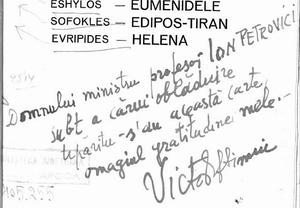 ESHYLOS — EUMENIDELE
SOFOKLES — EDIPOS-TIRAN
EVRIPIDES — HELENA
Domnului ministru profesor ION PETROVICI
subt a cărui oblăduire
tipăritu-s'au această carte,
omagiul gratitudinei mele.-
Victor Eftimiu